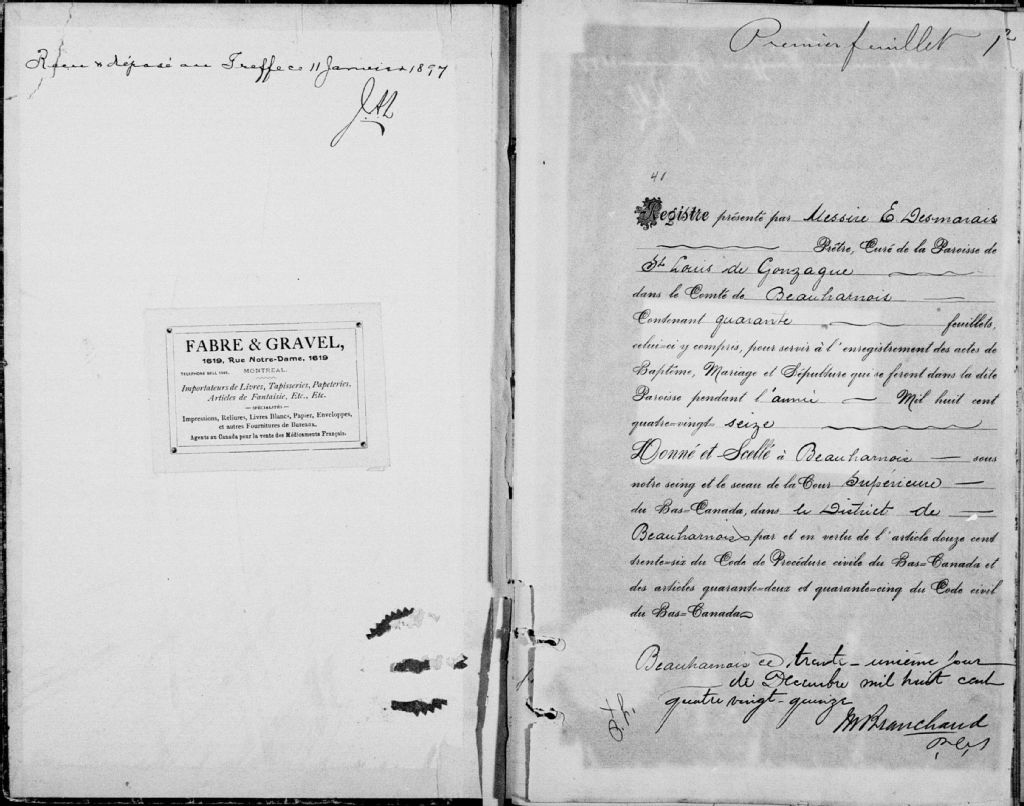 Reçu & déposé au Greffe ce 11 Janvier 1897
FABRE & GRAVEL,
1619, Rue Notre-Dame, 1619
MONTREAL.
Importateurs de Livres, Tapisseries, Papeteries,
Articles de Fantaisie, Etc., Etc.
— SPÉCIALITÉS —
Impressions, Reliures, Livres Blancs, Papier, Enveloppes,
et autres Fournitures de Bureaux.
Agents au Canada pour la vente des Médicaments Français.
Premier feuillet 1
Registre présenté par Messire E Desmarais
Prêtre, Curé de la Paroisse de
St Louis de Gonzague
dans le Comté de Beauharnois
Contenant quarante feuillets,
celui=ci y compris, pour servir à l'enregistrement des actes de
Baptême, Mariage et Sépulture qui se feront dans la dite
Paroisse pendant l'année Mil huit cent
quatre=vingt= seize
Donné et Scellé à Beauharnois sous
notre seing et le sceau de la Cour Supérieure
du Bas=Canada, dans le District de
Beauharnois par et en vertu de l'article douze cent
trente=six du Code de Procédure civile du Bas=Canada et
des articles quarante=deux et quarante=cinq du Code civil
du Bas=Canada
Beauharnois ce trente-unième jour
de Décembre mil huit cent
quatre vingt-quinze
M Branchaud